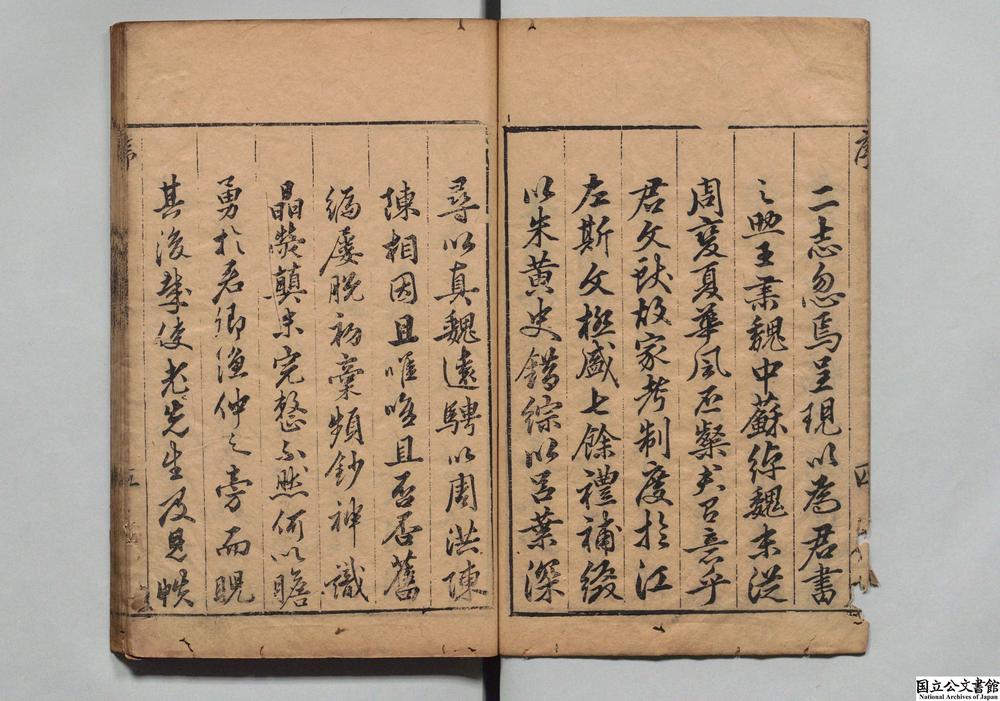 二志忽焉呈現以為君書
之
王業魏中蘇綽魏末從
周變夏華風丕粲
意乎
君文
故家考制度於江
左斯文極盛七餘禮補綴
以朱黃史錯綜以呂葉深
尋以真魏遠騁以周洪陳
陳相因且唯唯且否否舊
編屢脫初稾頻鈔神識
晶
未完整不然何以瞻
勇於君卿漁仲之旁而睨
其後
老先生及見
序
四
序
五
国立公文書館
National Archives of Japan